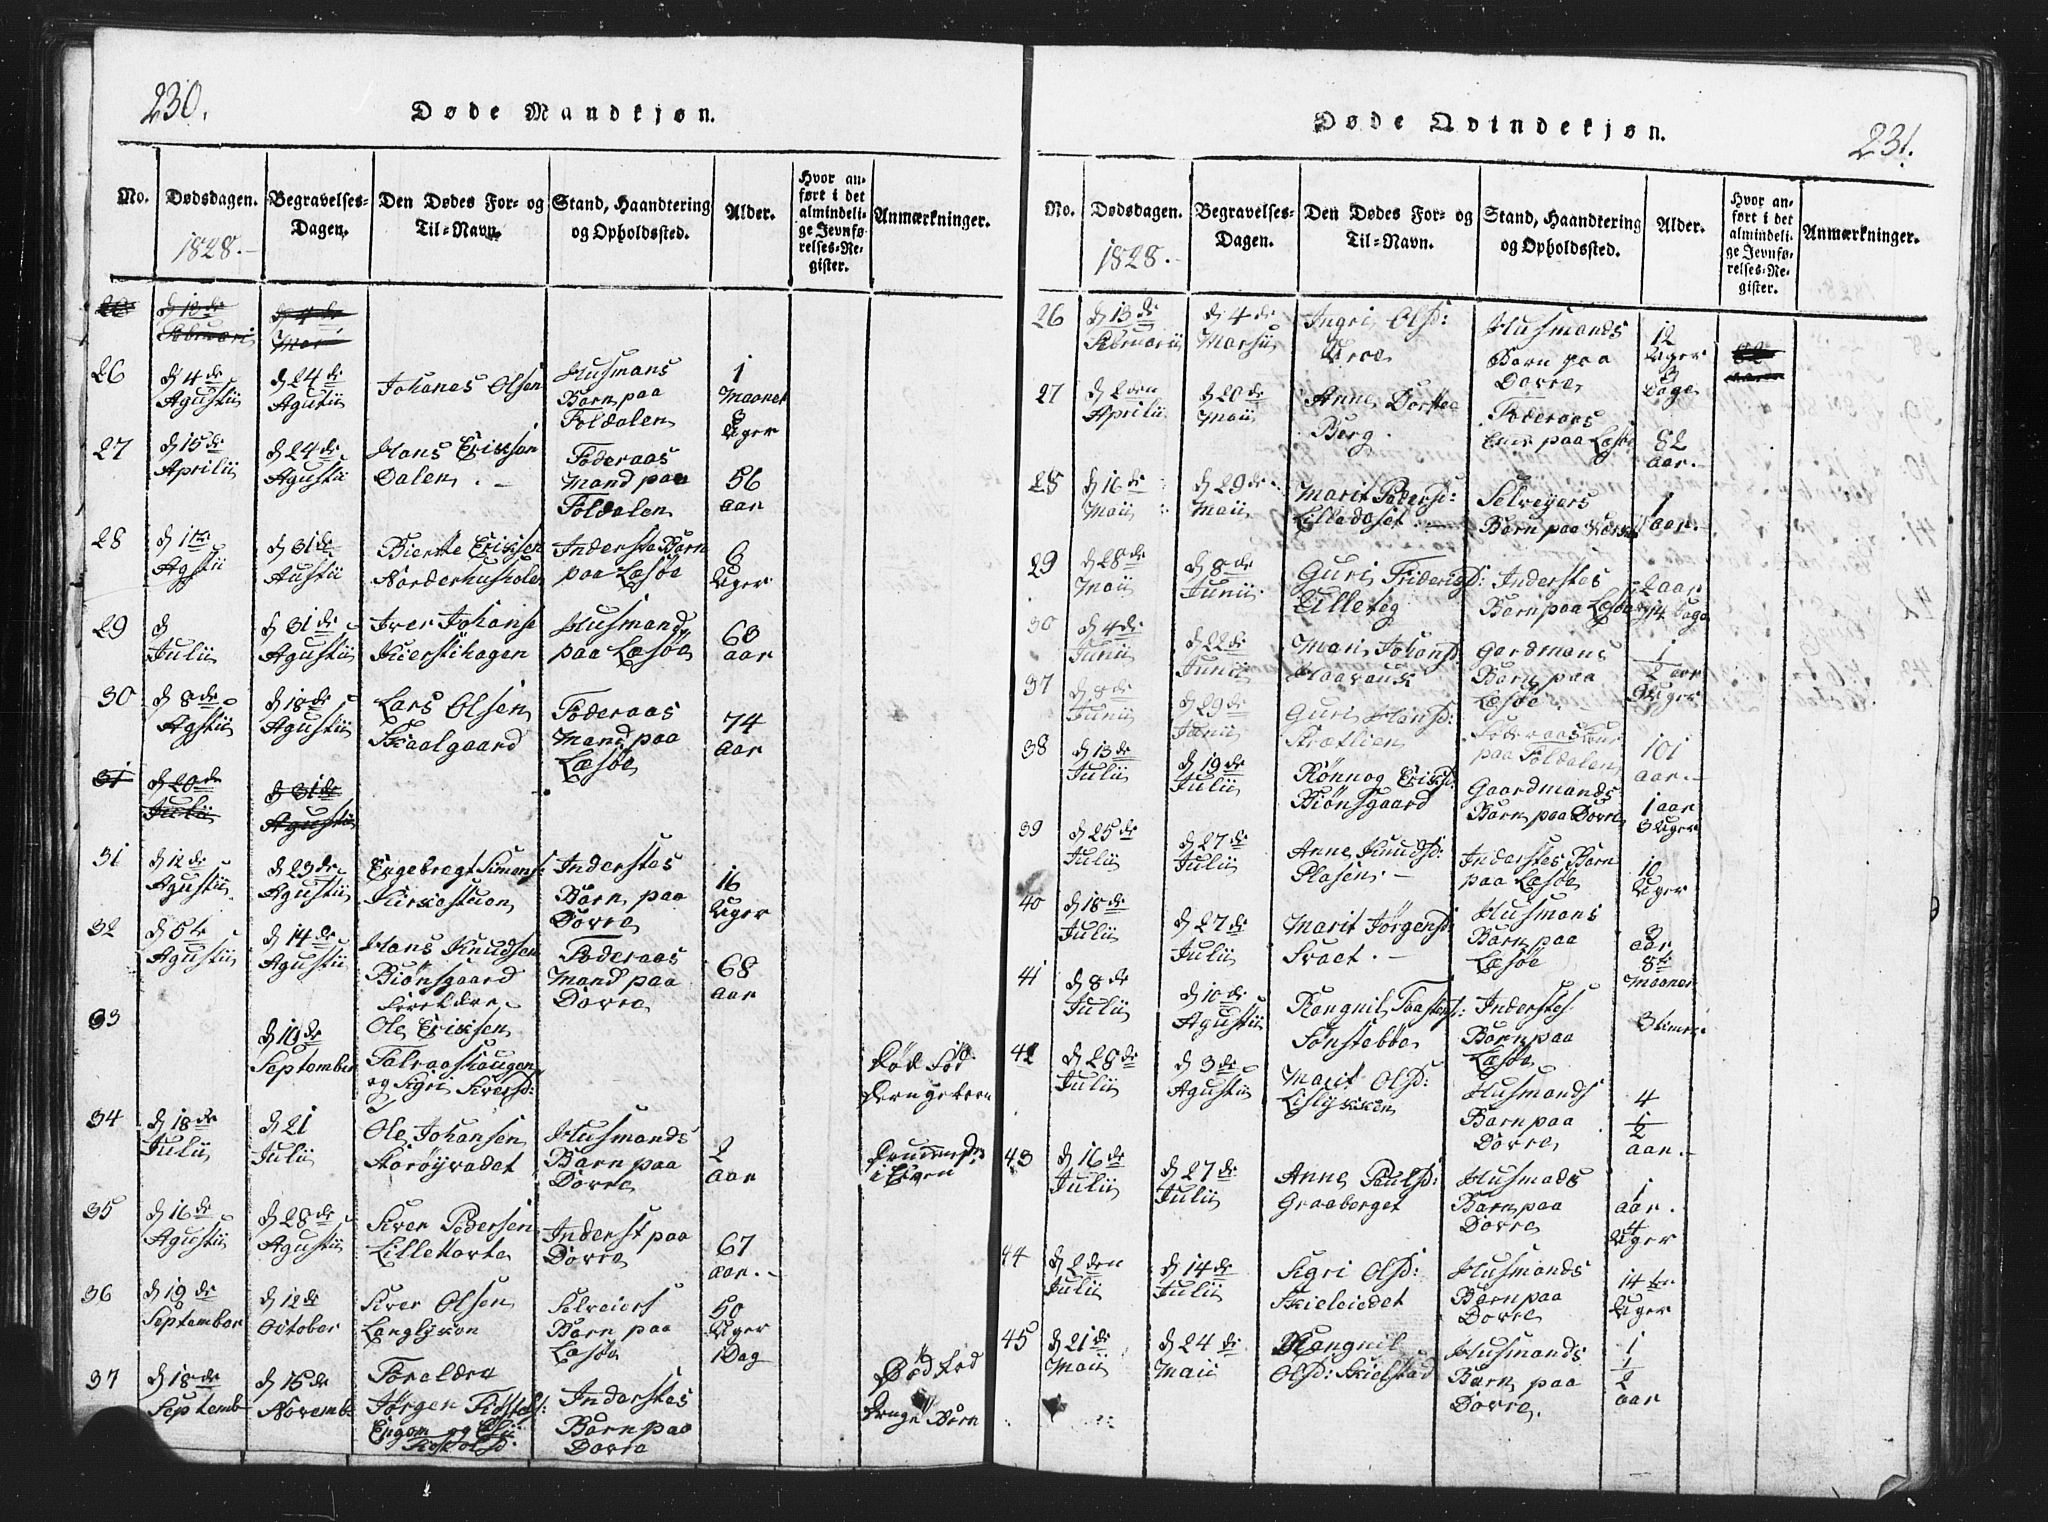 230.
Døde Mandkjøn.
No.
Dødsdagen.
1828.-
Begravelses-
Dagen.
Den Dødes For- og
Til-Navn.
Stand, Haandtering
og Opholdssted.
Alder.
Hvor an-
ført i det
almindeli-
ge Jevnfø-
relses-Re-
gister.
Anmærkninger.
26
d 4 de
Agustii
d 24 de
Agutii
Johanes Olsen
Husmans
Barn paa
Foldalen
1
Maanet
3
Uger
27
d 15 de
Aprilii
d 24 de
Agustii
Hans Erixsen
Dalen . -
Føderaas
Mand paa
Foldalen
56
aar
28
d 1 te
Agstii
d 31 de
Austii
Bierthe Erixsen
Norderhuskole
Inderste Barn
paa Læsøe
6
Uger
29
d
Julii
d 31 de
Agustii
Iver Johanse
Kierstihagen
Husmand
paa Læsøe
63
aar
30
d 8 de
Agstii
d 18 de
Agustii
Lars Olsen
Skaalgaard
Føderaas
Mand paa
Læsøe
74
aar
31
d 20 de
Julii
d 31 de
Agustii
31
d 12 de
Agustii
d 23 de
Agustii
Engebregt Simens:
Kirkestuen
Inderstes
Barn paa
Dovre
16
Uger
32
d 5 te
Agustii
d 14 de
Agustii
Hans Knudsen
Biønsgaard
Føderaas
Mand paa
Dovre
68
aar
33
d 19 de
September
Ole Erixsen
Talraashaugen
og Sigri Siversd:
Død Fød
Drengebern
34
d 18 de
Julii
d 21
Julii
Ole Johansen
Storøyvadet
Husmands
Barn paa
Dovre
2
aar
i Elven
35
d 16 de
Agustii
d 28 de
Agustii
Siver Pedersen
Lillehovte
Inderst paa
Dovre
67
aar.-
36
d 19 de
September
d 12 de
October
Siver Olsen
Langlykon
Selveiers
Barn paa
Læsøe
50
Uger
1 Dag
37
d 18 de
Septemb
d 15 de
Novemb
Foreldre
Jørgen
Inderstes
Barn paa
Dovre
Død Fød
Drenge Bern
231.
Døde Qvindekjøn.
No.
Dødsdagen.
1828.-
Begravelses-
Dagen.
Den Dødes For- og
Til-Navn.
Stand, Haandtering
og Opholdssted.
Alder.
Hvor an-
ført i det
almindeli-
ge Jevnfø-
relses-Re-
gister.
Anmærkninger.
26
d 13 de
Februarii
d 4 de
Marsii
Ingri Olsd:
Husmands
Barn paa
Dovre
12
Uger
3
Dage
27
d 2 den
Aprilii
d 20 de
Maii
Anne Dorthe
Berg.
Føderaas
Enke paa Læsøe
82
aar.-
28
d 16 de
Maii
d 29 de
Maii
Marit Pedersd:
Lilledoset . -
Selveyers
Barn paa
1
aar.-
29
d 28 de
Maii
d 8 de
Junii
Guri Friderigsd:
Lilleteg
Inderstes
Barn paa Læsøe
2 aar
14 Dage
30
d 4 de
Junii
d 22 de
Junii
Mari Johansd:
Haavauk
Gardmans
Barn paa
Læsøe.
1
2 aar
Uger
37
d 8 de
Junii
d 29 de
Junii
Guri Hansd:
Strætlien
Føderaas
paa Foldalen
101
aar.-
38
d 13 de
Julii
d 19 de
Julii
Rønnog Erixsd:
Biønsgaard
Gaardmands
Barn paa Dovre
1 aar
3 Uger
39
d 25 de
Julii
d 27 de
Julii
Anne Knudsd:
Plasen . -
Inderstes Barn
paa Læsøe
10
Uger
40
d 18 de
Julii
d 27 de
Julii
Marit Jørgensd:
Svaet . -
Husmans
Barn paa
Læsøe
3
aar
8 te
Maaner
41
d 8 de
Julii
d 10 de
Agustii
Rangnil
Sønstebøe
Inderstes
Barn paa
Læsøe
3 timer.
42
d 28 de
Julii
d 3 de
Agustii
Marit Olsd:
Lislykken
Husmands
Barn paa
Dovre
4
1
2
aar.-
43
d 16 de
Julii
d 27 de
Julii
Anne Paulsd:
Graaberget
Husmads
Barn paa
Dovre
1
aar.
4
Uger
44
d 2 den
Julii
d 14 de
Julii
Sigri Olsd:
Skieleiedet
Husmands
Barn paa
Dovre
14 ten
Uger
45
d 21 de
Maii
d 24 de
Maii
Rangnil
Olsd: Skielstad
Husmands
Barn paa
Dovre.
1
1
2
aar